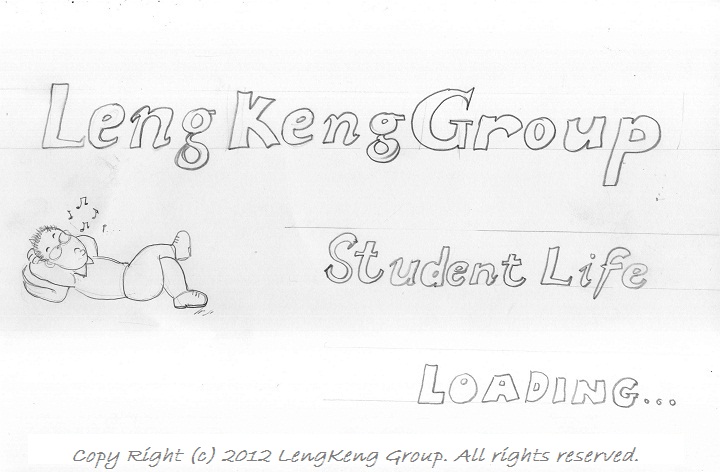 Leng Keng Group
Student Life
LOADING...
Copy Right (c) 2012 LengKeng Group. All rights reserved.